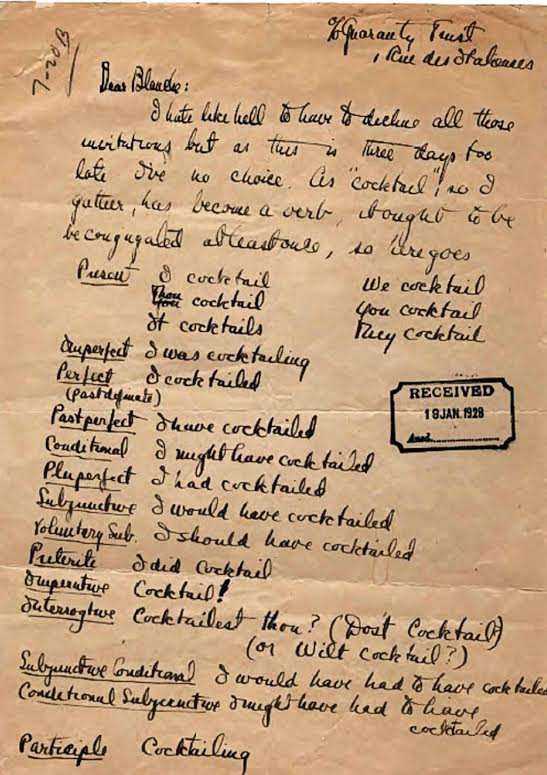 ℅ Guaranty Trust
1 Rue des Italiennes
7-20B
Dear Blanche:
I hate like hell to have to decline all those
invitations but as this is three days too
late I've no choice. As "cocktail", so I
gather, has become a verb, it ought to be
be conjugated at least once, so here goes
Present I cocktail We cocktail
Thou cocktail You cocktail
It cocktails They cocktail
Imperfect I was cocktailing
Perfect I cocktailed
(past definate)
Past perfect I have cocktailed
Conditional I might have cocktailed
Pluperfect I had cocktailed
Subjunctive I would have cocktailed
Voluntary Sub. I should have cocktailed
Preterite I did cocktail
Imperative Cocktail!
Interrogtive Cocktailest thou? (Dos't Cocktail?)
(or Wilt cocktail?)
Subjunctive Conditional I would have had to have cocktailed
Conditional Subjunctive I might have had to have
cocktailed
Participle Cocktailing
RECEIVED
19 JAN. 1928